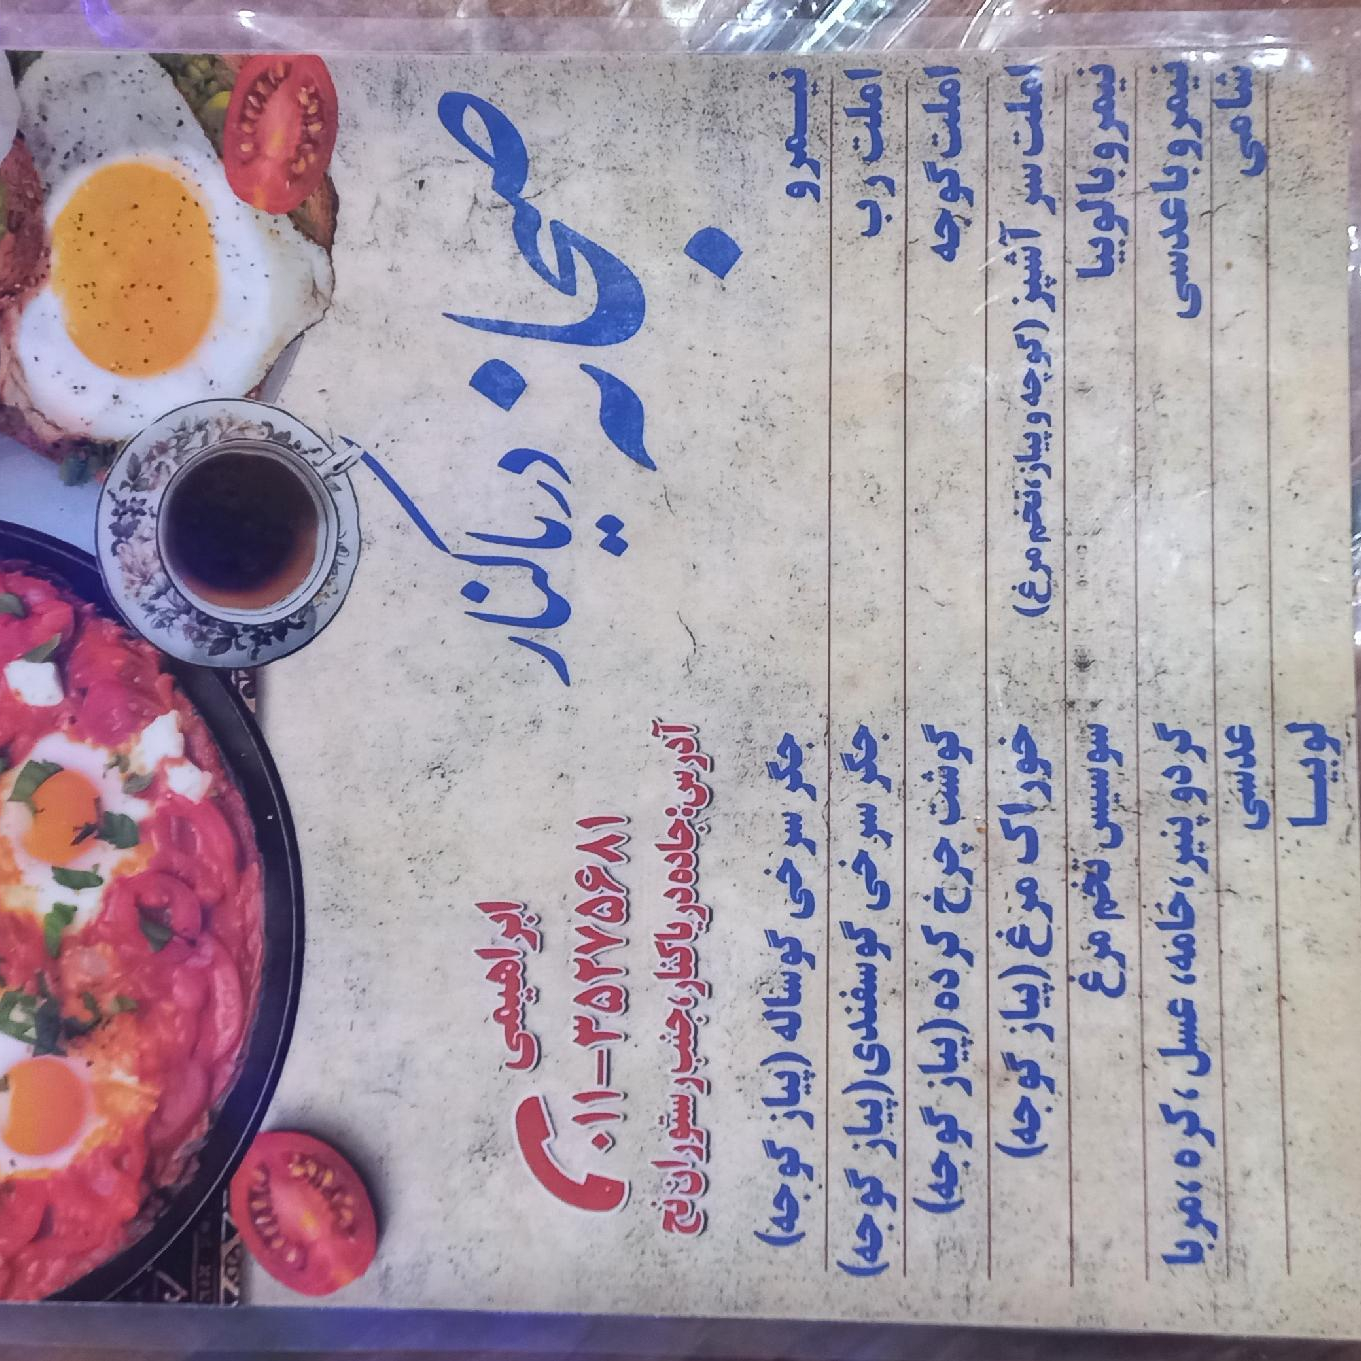 دریاکنار
ابراهیمی
۰۱۱-۳۵۲۷۵۶۸۱
آدرس:جاده دریاکنار،جنب رستوران
نیـــمرو
جگر سرخی گوساله (پیاز گوجه)
املت رب
جگر سرخی گوسفندی(پیاز گوجه)
املت گوجه
گوشت چرخ کرده (پیاز گوجه)
املت سر آشپز (گوجه و پیاز،تخم مرغ)
خوراک مرغ (پیاز گوجه)
نیمرو با لوبیا
سوسیس تخم مرغ
نیمرو با عدسی
گردو پنیر،خامه، عسل ، کره ،مربا
شامی
عدسی
لوبیــا